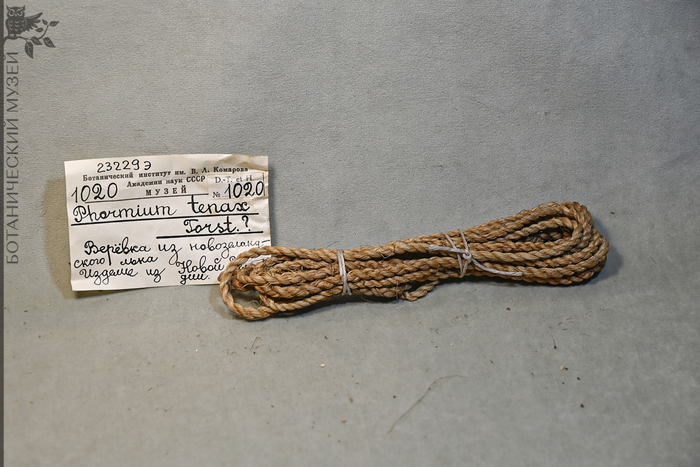 БОТАНИЧЕСКИЙ МУЗЕЙ
23229э
Ботанический институт им. В. Л. Комарова
Академии наук СССР D.-T. et H.
1020 МУЗЕЙ № 1020
Phormium tenax
Forst.?
Верёвка из новозеланд-
ского льна
Изделие из Новой
дии.